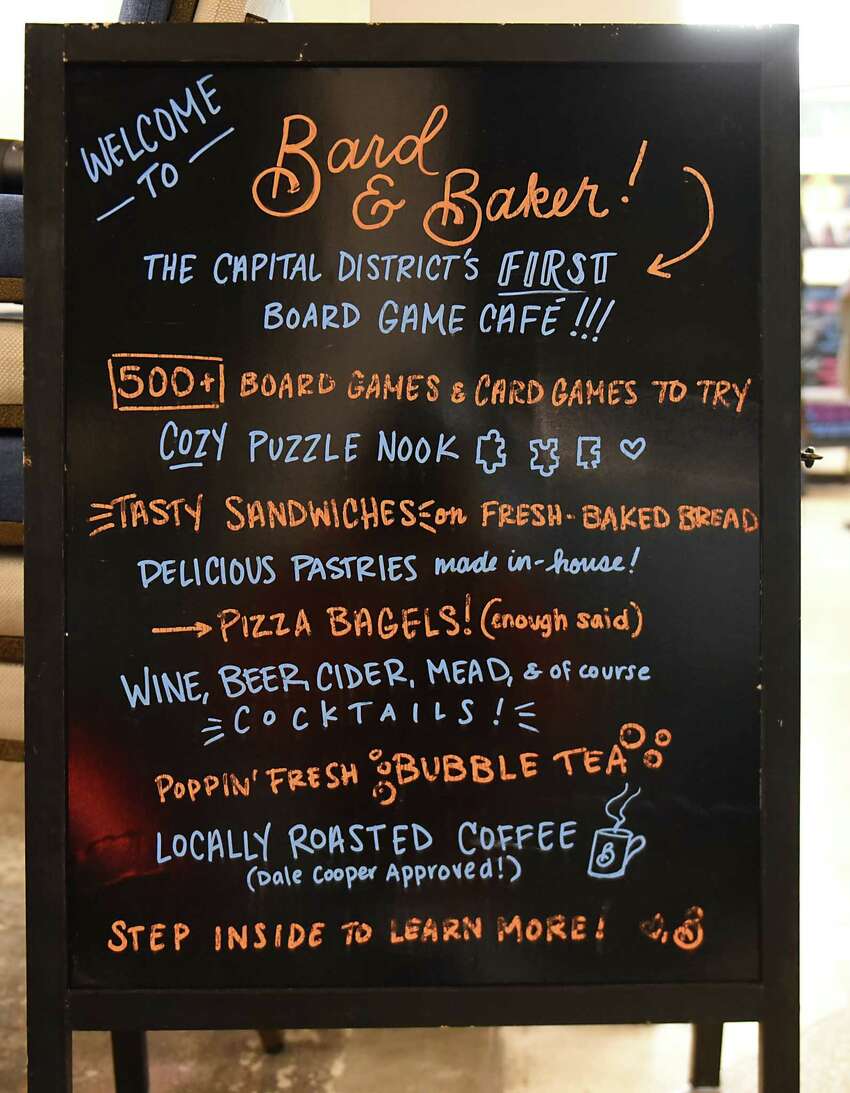 WELCOME
— TO —
Bard
& Baker!
THE CAPITAL DISTRICT'S FIRST
BOARD GAME CAFÉ!!!
500+ BOARD GAMES & CARD GAMES TO TRY
COZY PUZZLE NOOK
TASTY SANDWICHES on FRESH-BAKED BREAD
DELICIOUS PASTRIES made in-house!
→ PIZZA BAGELS! (enough said)
WINE, BEER, CIDER, MEAD, & of course
COCKTAILS!
POPPIN' FRESH BUBBLE TEA
LOCALLY ROASTED COFFEE
B
(Dale Cooper Approved!)
STEP INSIDE TO LEARN MORE!